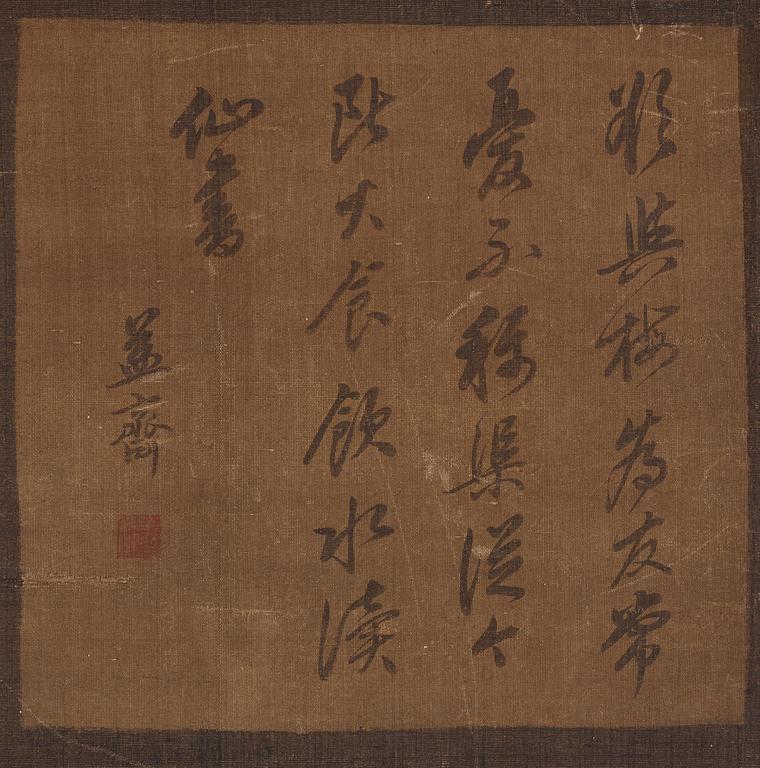 欲與梅為友常
憂不稱渠從今
斷火食飲水讀
仙書
益齋